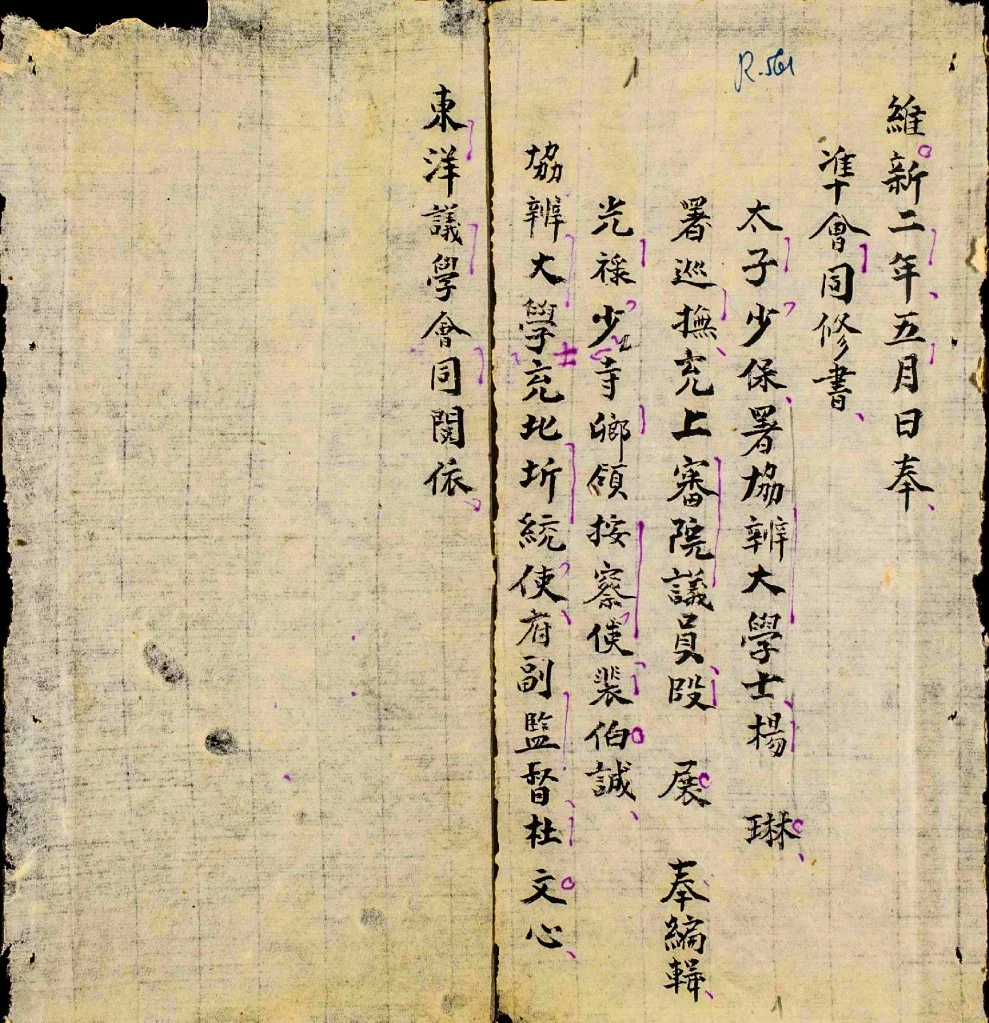 R.561
維新二年五月日奉
準會同修書
太子少保署協辦大學士楊 琳
署巡撫充上審院議員段 展 奉編輯
光祿少寺卿領按察使裴伯誠
協辨大學士充北圻統使府副監督杜文心
東洋議學會同閱依